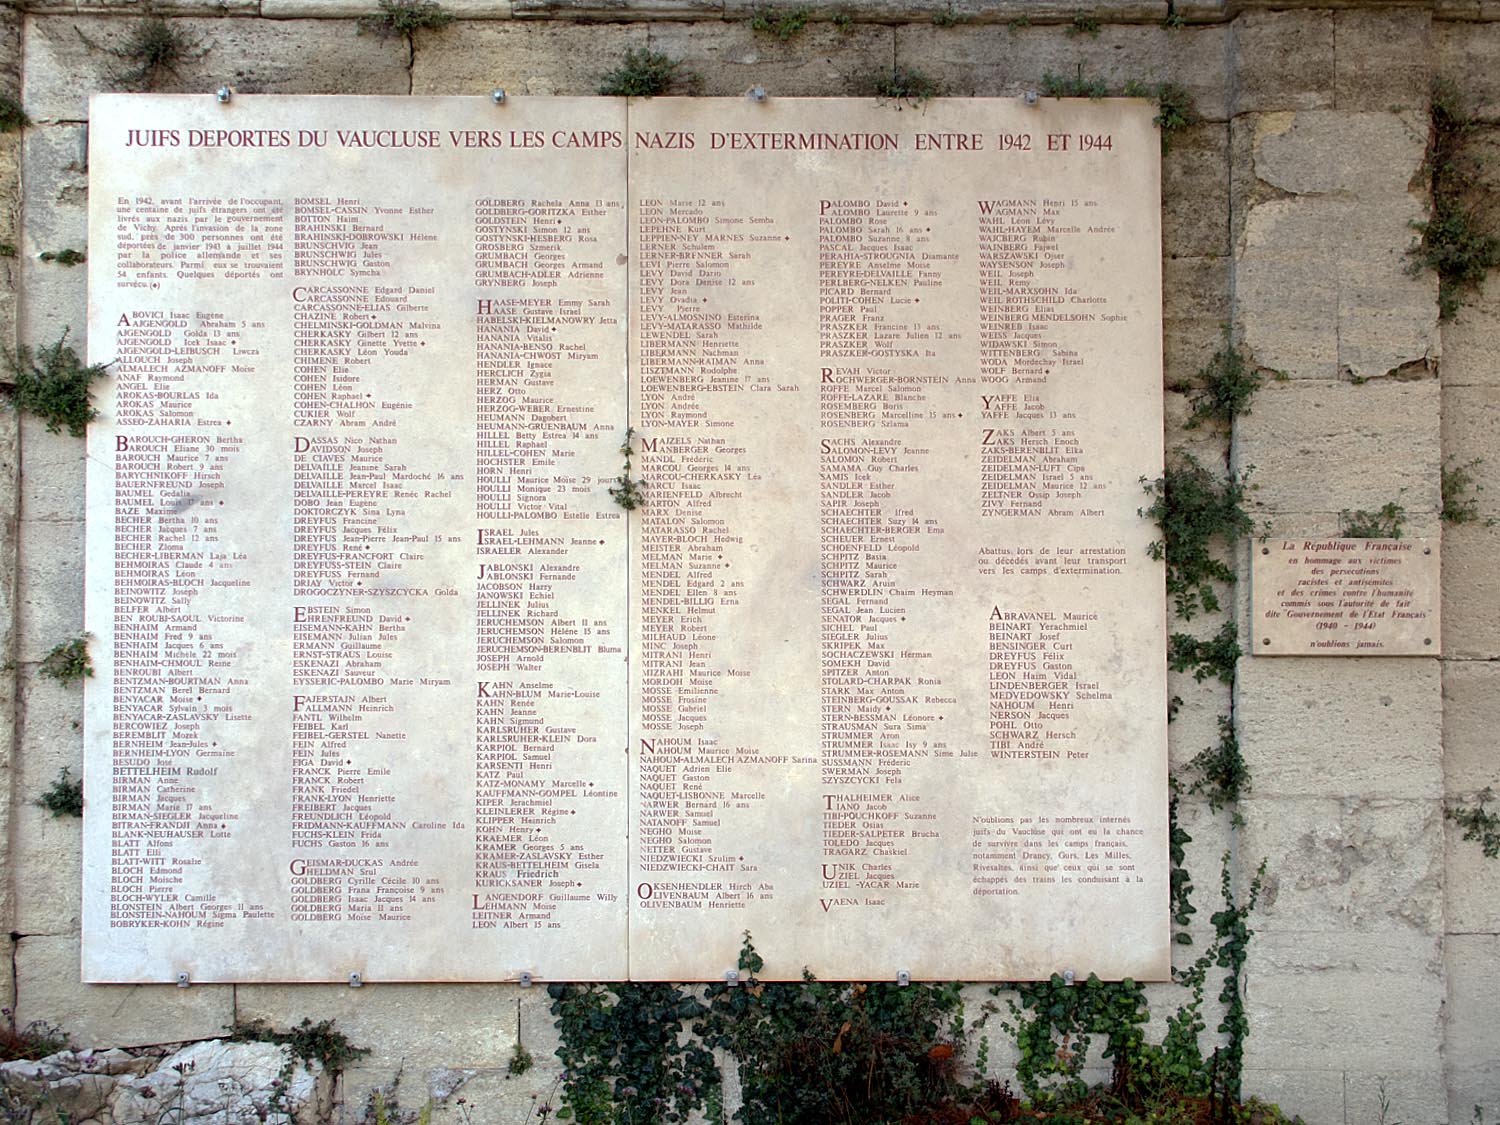 JUIFS DEPORTES DU VAUCLUSE VERS LES CAMPS NAZIS D'EXTERMINATION ENTRE 1942 ET 1944
En 1942, avant l'arrivée de l'occupant,
une centaine de juifs étrangers ont été
livrés aux nazis par le gouvernement
de Vichy. Après l'invasion de la zone
sud, près de 300 personnes ont été
déportées de janvier 1943 à juillet 1944
par la police allemande et ses
collaborateurs. Parmi eux se trouvaient
54 enfants. Quelques déportés ont
survécu.(⬥)
ABOVICI Isaac Eugène
AJGENGOLD Abraham 5 ans
AJGENGOLD Golda 13 ans
AJGENGOLD Icek Isaac ⬥
AJGENGOLD-LEIBUSCH Liwcza
ALLOUCH Joseph
ALMALECH AZMANOFF Moise
ANAF Raymond
ANGEL Elie
AROKAS-BOURLAS Ida
AROKAS Maurice
AROKAS Salomon
ASSEO-ZAHARIA Estrea ⬥
BAROUCH-GHERON Bertha
BAROUCH Eliane 30 mois
BAROUCH Maurice 7 ans
BAROUCH Robert 9 ans
BARYCHNIKOFF Hirsch
BAUERNFREUND Joseph
BAUMEL Gedalia
BAUMEL Louis 17 ans ⬥
BAZE Maxime
BECHER Bertha 10 ans
BECHER Jacques 7 ans
BECHER Rachel 12 ans
BECHER Zloma
BECHER-LIBERMAN Laja Léa
BEHMOIRAS Claude 4 ans
BEHMOIRAS Léon
BEHMOIRAS-BLOCH Jacqueline
BEINOWITZ Joseph
BEINOWITZ Sally
BELFER Albert
BEN ROUBI-SAOUL Victorine
BENHAIM Armand
BENHAIM Fred 9 ans
BENHAIM Jacques 6 ans
BENHAIM Michèle 22 mois
BENHAIM-CHMOUL Reine
BENROUBI Albert
BENTZMAN-BOURTMAN Anna
BENTZMAN Berel Bernard
BENYACAR Moise ⬥
BENYACAR Sylvain 3 mois
BENYACAR-ZASLAVSKY Lisette
BERCOWIEZ Joseph
BEREMBLIT Mozek
BERNHEIM Jean-Jules ⬥
BERNHEIM-LYON Germaine
BESUDO José
BETTELHEIM Rudolf
BIRMAN Anne
BIRMAN Catherine
BIRMAN Jacques
BIRMAN Marie 17 ans
BIRMAN-SIEGLER Jacqueline
BITRAN-FRANDJI Anna ⬥
BLANK-NEUHAUSER Lotte
BLATT Alfons
BLATT Elli
BLATT-WITT Rosalie
BLOCH Edmond
BLOCH Moische
BLOCH Pierre
BLOCH-WYLER Camille
BLONSTEIN Albert Georges 11 ans
BLONSTEIN-NAHOUM Sigma Paulette
BOBRYKER-KOHN Régine
BOMSEL Henri
BOMSEL-CASSIN Yvonne Esther
BOTTON Haim
BRAHINSKI Bernard
BRAHINSKI-DOBROWSKI Hélène
BRUNSCHVIG Jean
BRUNSCHWIG Jules
BRUNSCHWIG Gaston
BRYNHOLC Symcha
CARCASSONNE Edgard Daniel
CARCASSONNE Edouard
CARCASSONNE-ELIAS Gilberte
CHAZINE Robert ⬥
CHELMINSKI-GOLDMAN Malvina
CHERKASKY Gilbert 12 ans
CHERKASKY Ginette Yvette ⬥
CHERKASKY Léon Youda
CHIMENE Robert
COHEN Elie
COHEN Isidore
COHEN Léon
COHEN Raphaël ⬥
COHEN-CHALHON Eugénie
CUKIER Wolf
CZARNY Abram André
DASSAS Nico Nathan
DAVIDSON Joseph
DE CIAVES Maurice
DELVAILLE Jeanine Sarah
DELVAILLE Jean-Paul Mardoché 16 ans
DELVAILLE Marcel Isaac
DELVAILLE-PEREYRE Renée Rachel
DOBO Jean Eugène
DOKTORCZYK Sina Lyna
DREYFUS Francine
DREYFUS Jacques Félix
DREYFUS Jean-Pierre Jean-Paul 15 ans
DREYFUS René ⬥
DREYFUS-FRANCFORT Claire
DREYFUSS-STEIN Claire
DREYFUSS Fernand
DRIAY Victor ⬥
DROGOCZYNER-SZYSZCYCKA Golda
EBSTEIN Simon
EHRENFREUND David ⬥
EISEMANN-KAHN Bertha
EISEMANN Julian Jules
ERMANN Guillaume
ERNST-STRAUS Louise
ESKENAZI Abraham
ESKENAZI Sauveur
EYSSERIC-PALOMBO Marie Miryam
FAJERSTAIN Albert
FALLMANN Heinrich
FANTL Wilhelm
FEIBEL Karl
FEIBEL-GERSTEL Nanette
FEIN Alfred
FEIN Jules
FIGA David ⬥
FRANCK Pierre Emile
FRANCK Robert
FRANK Friedel
FRANK-LYON Henriette
FREIBERT Jacques
FREUNDLICH Léopold
FRIDMANN-KAUFFMANN Caroline Ida
FUCHS-KLEIN Frida
FUCHS Gaston 16 ans
GEISMAR-DUCKAS Andrée
GHELDMAN Srul
GOLDBERG Cyrille Cécile 10 ans
GOLDBERG Frana Françoise 9 ans
GOLDBERG Isaac Jacques 14 ans
GOLDBERG Maria 11 ans
GOLDBERG Moïse Maurice
GOLDBERG Rachela Anna 13 ans
GOLDBERG-GORITZKA Esther
GOLDSTEIN Henri ⬥
GOSTYNSKI Simon 12 ans
GOSTYNSKI-HESBERG Rosa
GROSBERG Szmerik
GRUMBACH Georges
GRUMBACH Georges Armand
GRUMBACH-ADLER Adrienne
GRYNBERG Joseph
HAASE-MEYER Emmy Sarah
HAASE Gustave Israel
HABELSKI-KIELMANOWRY Jetta
HANANIA David ⬥
HANANIA Vitalis
HANANIA-BENSO Rachel
HANANIA-CHWOST Miryam
HENDLER Ignace
HERCLICH Zygia
HERMAN Gustave
HERZ Otto
HERZOG Maurice
HERZOG-WEBER Ernestine
HEUMANN Dagobert
HEUMANN-GRUENBAUM Anna
HILLEL Betty Estrea 14 ans
HILLEL Raphael
HILLEL-COHEN Mathilde
HOCHSTER Emile
HORN Henri
HOULLI Maurice Moïse 29 jours
HOULLI Monique 23 mois
HOULLI Signora
HOULLI Victor Vital
HOULLI-PALOMBO Estelle Estrea
ISRAEL Jules
ISRAEL-LEHMANN Jeanne ⬥
ISRAELER Alexander
JABLONSKI Alexandre
JABLONSKI Fernande
JACOBSON Harry
JANOWSKI Echiel
JELLINEK Julius
JELLINEK Richard
JERUCHEMSON Albert 11 ans
JERUCHEMSON Hélène 15 ans
JERUCHEMSON Salomon
JERUCHEMSON-BERENBLIT Bluma
JOSEPH Arnold
JOSEPH Walter
KAHN Anselme
KAHN-BLUM Marie-Louise
KAHN Renée
KAHN Jeanne
KAHN Sigmund
KARLSRUHER Gustave
KARLSRUHER-KLEIN Dora
KARPIOL Bernard
KARPIOL Samuel
KARSENTI Henri
KATZ Paul
KATZ-MONAMY Marcelle ⬥
KAUFFMANN-GOMPEL Léontine
KIPER Jerachmiel
KLEINLERER Régine ⬥
KLIPPER Heinrich
KOHN Henry ⬥
KRAEMER Léon
KRAMER Georges 5 ans
KRAMER-ZASLAVSKY Esther
KRAUS-BETTELHEIM Gisela
KRAUS Friedrich
KURICKSANER Joseph ⬥
LANGENDORF Guillaume Willy
LEHMANN Moise
LEITNER Armand
LEON Albert 15 ans
LEON Marie 12 ans
LEON Mercado
LEON-PALOMBO Simone Semba
LEPEHNE Kurt
LEPPIEN-NEY MARNES Suzanne ⬥
LERNER Schulem
LERNER-BRENNER Sarah
LEVI Pierre Salomon
LEVY David Dario
LEVY Dora Denise 12 ans
LEVY Jean
LEVY Ovadia ⬥
LEVY Pierre
LEVY-ALMOSNINO Esterina
LEVY-MATARASSO Mathilde
LEWENDEL Sarah
LIBERMANN Henriette
LIBERMANN Nachman
LIBERMANN-RAIMAN Anna
LISZTMANN Rodolphe
LOEWENBERG Jeanine 17 ans
LOEWENBERG-EBSTEIN Clara Sarah
LYON André
LYON Armand
LYON Raymond
LYON-MAYER Simone
MAIZELS Nathan
MANBERGER Georges
MANDL Frédéric
MARCOU Georges 14 ans
MARCOU-CHERKASKY Léa
MARCU Isaac
MARIENFELD Albrecht
MARTON Alfred
MARX Denise
MATALON Salomon
MATARASSO Rachel
MAYER-BLOCH Hedwig
MEISTER Abraham
MELMAN Marie ⬥
MELMAN Suzanne ⬥
MENDEL Alfred
MENDEL Edgard 2 ans
MENDEL Ellen 8 ans
MENDEL-BILLIG Erna
MENKEL Helmut
MEYER Erich
MEYER Robert
MILHAUD Léone
MINC Joseph
MITRANI Henri
MITRANI Jean
MIZRAHI Maurice Moise
MORDOH Moise
MOSSE Emilienne
MOSSE Frosine
MOSSE Gabriel
MOSSE Jacques
MOSSE Joseph
NAHOUM Isaac
NAHOUM Maurice Moise
NAHOUM-ALMALECH AZMANOFF Sarina
NAQUET Adrien Elie
NAQUET Gaston
NAQUET René
NAQUET-LISBONNE Marcelle
NARWER Bernard 16 ans
NARWER Samuel
NATANOFF Samuel
NEGHO Moise
NEGHO Salomon
NETTER Gustave
NIEDZWIECKI Szulim ⬥
NIEDZWIECKI-CHAIT Sara
OKSENHENDLER Hirch Aba
OLIVENBAUM Albert 16 ans
OLIVENBAUM Henriette
PALOMBO David ⬥
PALOMBO Laurette 9 ans
PALOMBO Rose
PALOMBO Sarah 16 ans ⬥
PALOMBO Suzanne 8 ans
PASCAL Jacques Isaac
PERAHIA-STROUGNIA Diamante
PEREYRE Anselme Moise
PEREYRE-DELVAILLE Fanny
PERLBERG-NELKEN Pauline
PICARD Bernard
POLITI-COHEN Lucie ⬥
POPPER Paul
PRAGER Franz
PRASZKER Francine 13 ans
PRASZKER Lazare Julien 12 ans
PRASZKER Wolf
PRASZKER-GOSTYSKA Ita
REVAH Victor
ROCHWERGER-BORNSTEIN Anna
ROFFE Marcel Salomon
ROFFE-LAZARE Blanche
ROSEMBERG Boris
ROSENBERG Marcelline 15 ans ⬥
ROSENBERG Szlama
SACHS Alexandre
SALOMON-LEVY Jeanne
SALOMON Robert
SAMAMA Guy Charles
SAMIS Icek
SANDLER Esther
SANDLER Jacob
SAPIR Joseph
SCHAECHTER Ifred
SCHAECHTER Suzy 14 ans
SCHAECHTER-BERGER Ema
SCHEUER Ernest
SCHOENFELD Léopold
SCHPITZ Basia
SCHPITZ Maurice
SCHPITZ Sarah
SCHWARZ Aruin
SCHWERDLIN Chaim Heyman
SEGAL Fernand
SEGAL Jean Lucien
SENATOR Jacques ⬥
SICHEL Paul
SIEGLER Julius
SKRIPEK Max
SOCHACZEWSKI Herman
SOMEKH David
SPITZER Anton
STOLARD-CHARPAK Ronia
STARK Max Anton
STEINBERG-GOUSSAK Rebecca
STERN Maidy ⬥
STERN-BESSMAN Léonore ⬥
STRAUSMAN Sura Sima
STRUMMER Aron
STRUMMER Isaac Isy 9 ans
STRUMMER-ROSEMANN Sime Julie
SUSSMANN Fréderic
SWERMAN Joseph
SZYSZCYCKI Fela
THALHEIMER Alice
TIANO Jacob
TIBI-POUCHKOFF Suzanne
TIEDER Osias
TIEDER-SALPETER Brucha
TOLEDO Jacques
TRAGARZ Chaskiel
UNIK Charles
UZIEL Jacques
UZIEL -YACAR Marie
VAENA Isaac
WAGMANN Henri 15 ans
WAGMANN Max
WAHL Léon Lévy
WAHL-HAYEM Marcelle Andrée
WAJCBERG Rubin
WAJNBERG Fajwel
WARSZAWSKI Ojser
WAYSENSON Joseph
WEIL Joseph
WEIL Remy
WEIL-MARXSOHN Ida
WEIL ROTHSCHILD Charlotte
WEINBERG Elias
WEINBERG MENDELSOHN Sophie
WEINREB Isaac
WEISS Jacques
WIDAWSKI Simon
WITTENBERG Sabina
WODA Mordechay Israel
WOLF Bernard ⬥
WOOG Armand
YAFFE Elia
YAFFE Jacob
YAFFE Jacques 13 ans
ZAKS Albert 5 ans
ZAKS Hersch Enoch
ZAKS-BERENBLIT Elka
ZEIDELMAN Abraham
ZEIDELMAN-LUFT Cipa
ZEIDELMAN Israel 5 ans
ZEIDELMAN Maurice 12 ans
ZELTNER Ossip Joseph
ZIVY Fernand
ZYNGERMAN Abram Albert
Abattus lors de leur arrestation
ou décédés avant leur transport
vers les camps d'extermination.
ABRAVANEL Maurice
BEINART Yerachmiel
BEINART Josef
BENSINGER Curt
DREYFUS Félix
DREYFUS Gaston
LEON Haim Vidal
LINDENBERGER Israel
MEDVEDOWSKY Schelma
NAHOUM Henri
NERSON Jacques
POHL Otto
SCHWARZ Hersch
TIBI André
WINTERSTEIN Peter
N'oublions pas les nombreux internés
juifs du Vaucluse qui ont eu la chance
de survivre dans les camps français,
notamment Drancy, Gurs, Les Milles,
Rivesaltes, ainsi que ceux qui se sont
échappés des trains les conduisant à la
déportation.
La République Française
en hommage aux victimes
des persécutions
racistes et antisémites
et des crimes contre l'humanité
commis sous l'autorité de fait
dite "Gouvernement de l'Etat Français"
(1940 - 1944)
n'oublions jamais.